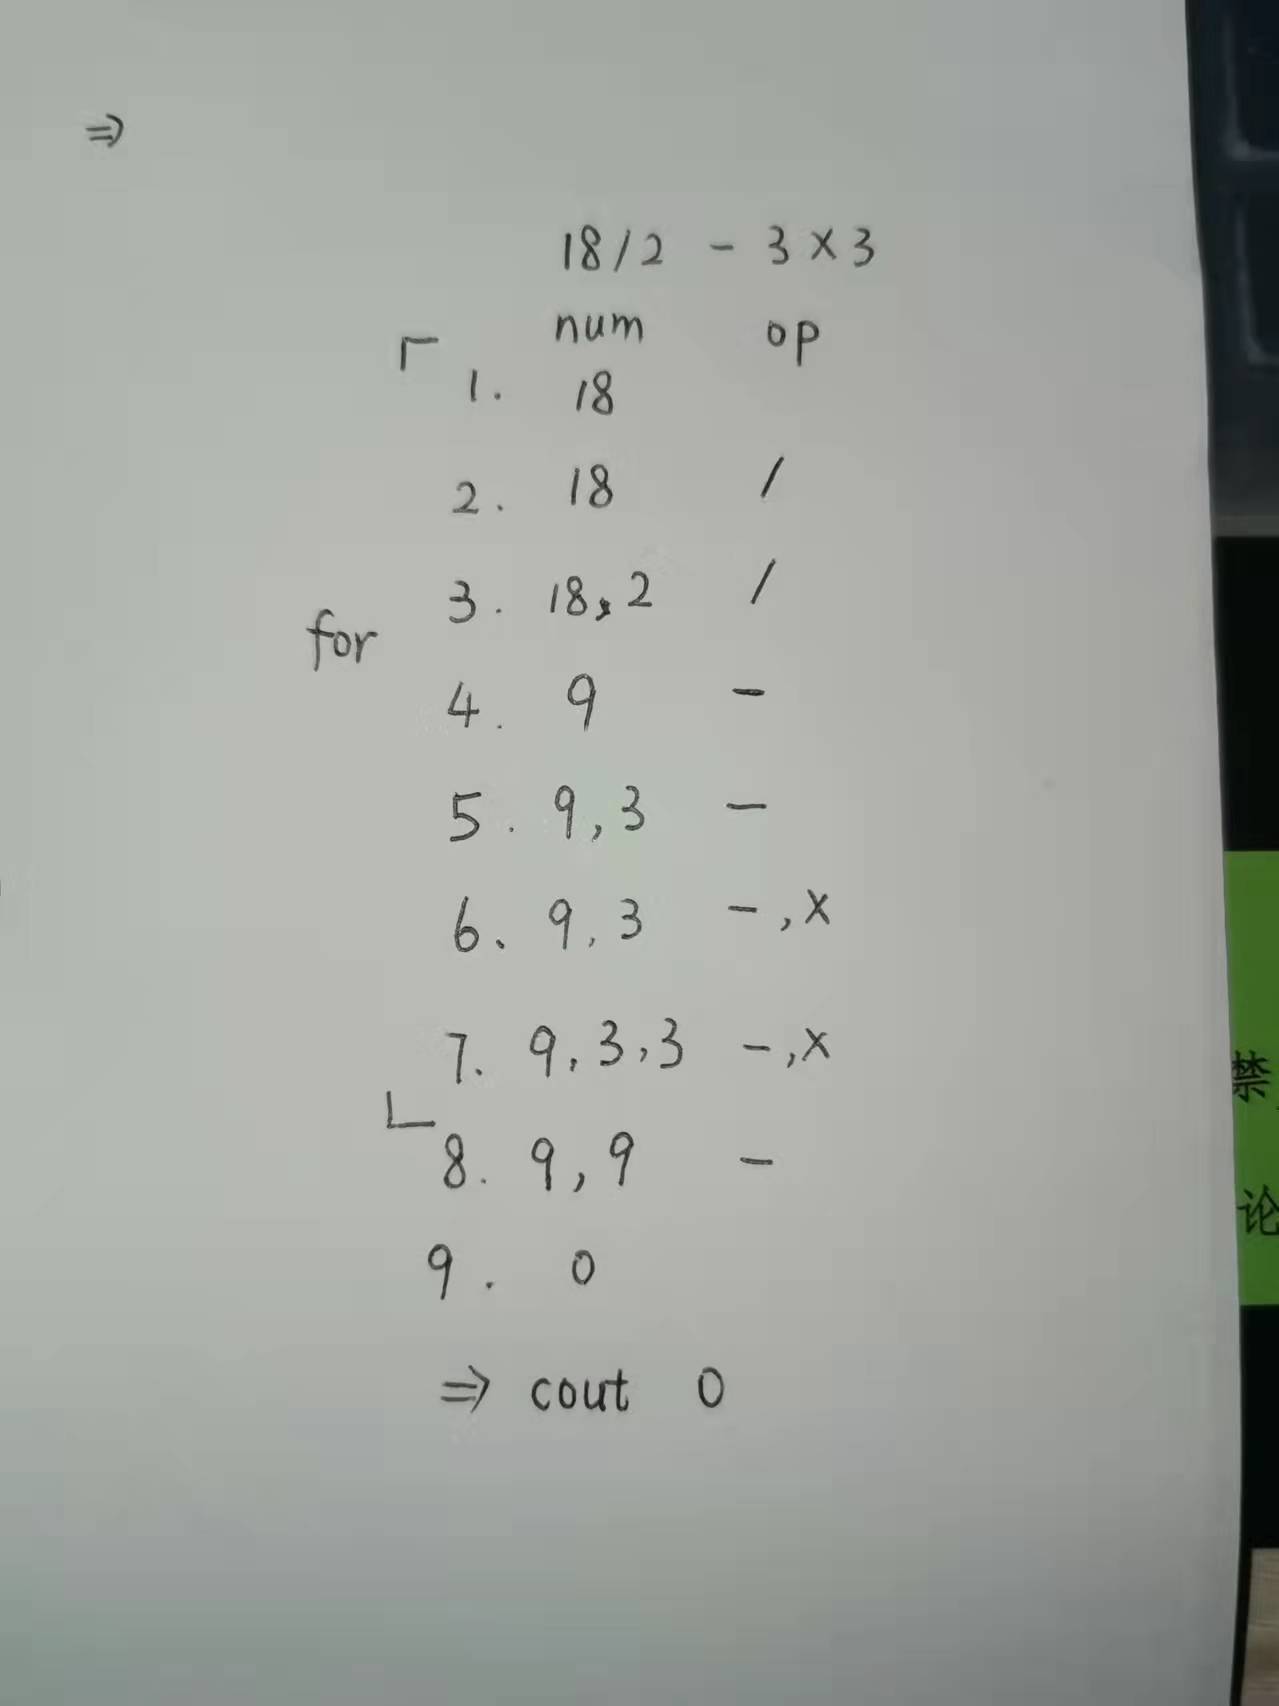 ⇒
18/2 - 3×3
num op
1. 18
2. 18 /
3. 18,2 /
for
4. 9 -
5. 9,3 -
6. 9,3 -,×
7. 9,3,3 -,×
8. 9,9 -
9. 0
⇒ cout 0
禁
论